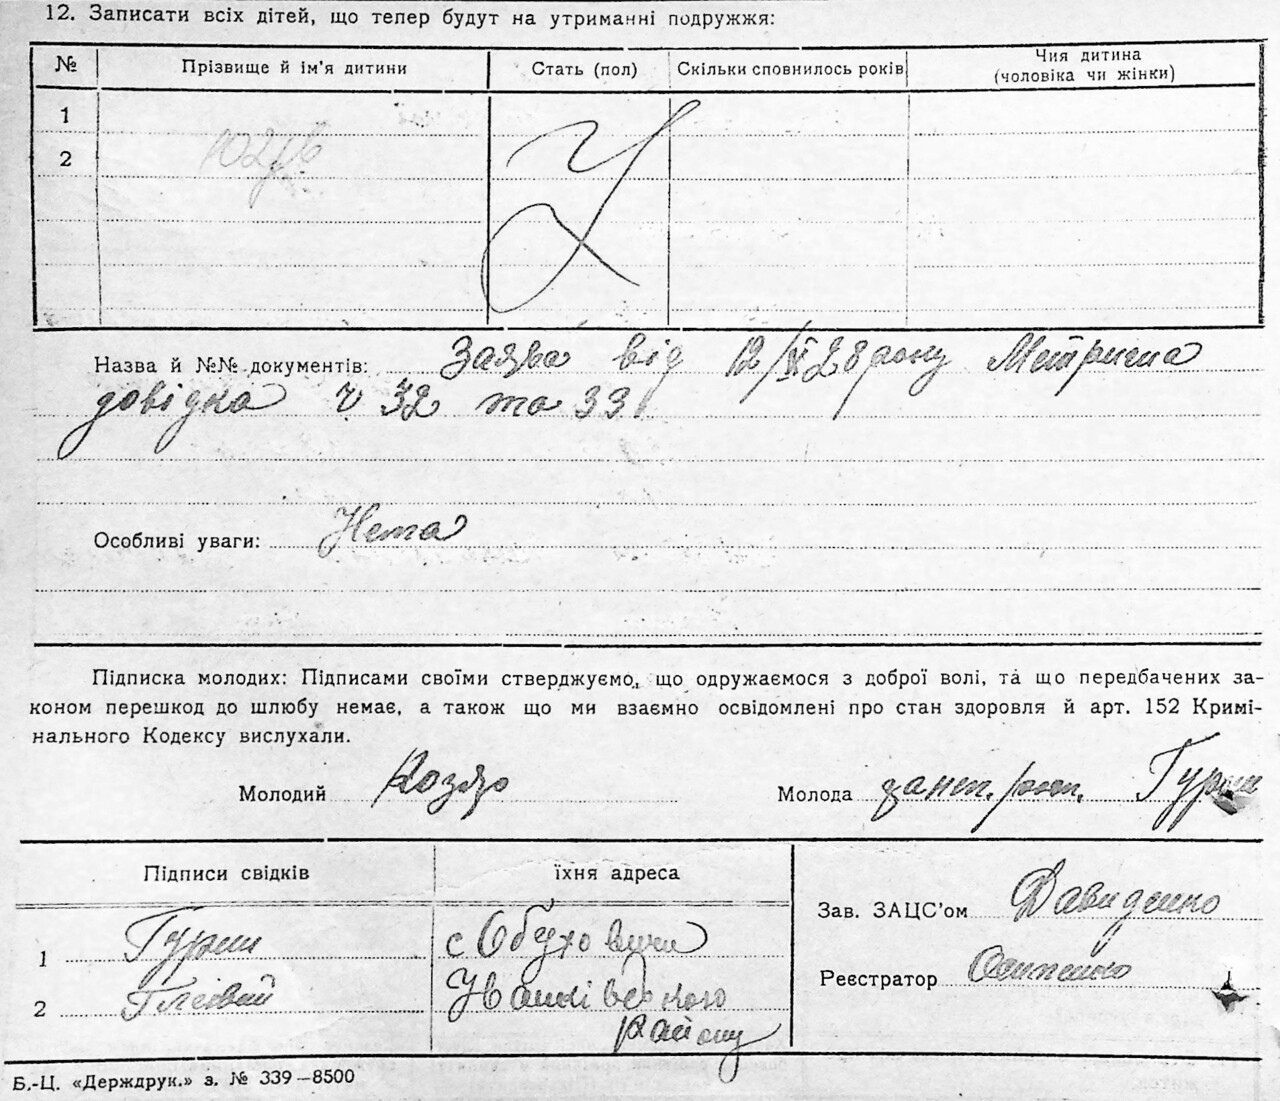 12. Записати всіх дітей, що тепер будут на утриманні подружжя:
№ Прізвище й ім'я дитини Стать (пол) Скільки сповнилось років Чия дитина
(чоловіка чи жінки)
1
2
Назва й №№ документів: Заява від 12/XI 28 року Метрична
довідка ч 32 та 33
Особливі уваги: Нема
Підписка молодих: Підписами своїми стверджуємо, що одружаємося з доброї волі, та що передбачених за-
коном перешкод до шлюбу немає, а також що ми взаємно освідомлені про стан здоровля й арт. 152 Кримі-
нального Кодексу вислухали.
Молодий Молода Гурин
Підписи свідків їхня адреса
Зав. ЗАЦС'ом Давиденко
1 Гурин с Обуховичи
Реєстратор
2 Іванківського
району
Б.-Ц. «Держдрук.» з. № 339–8500